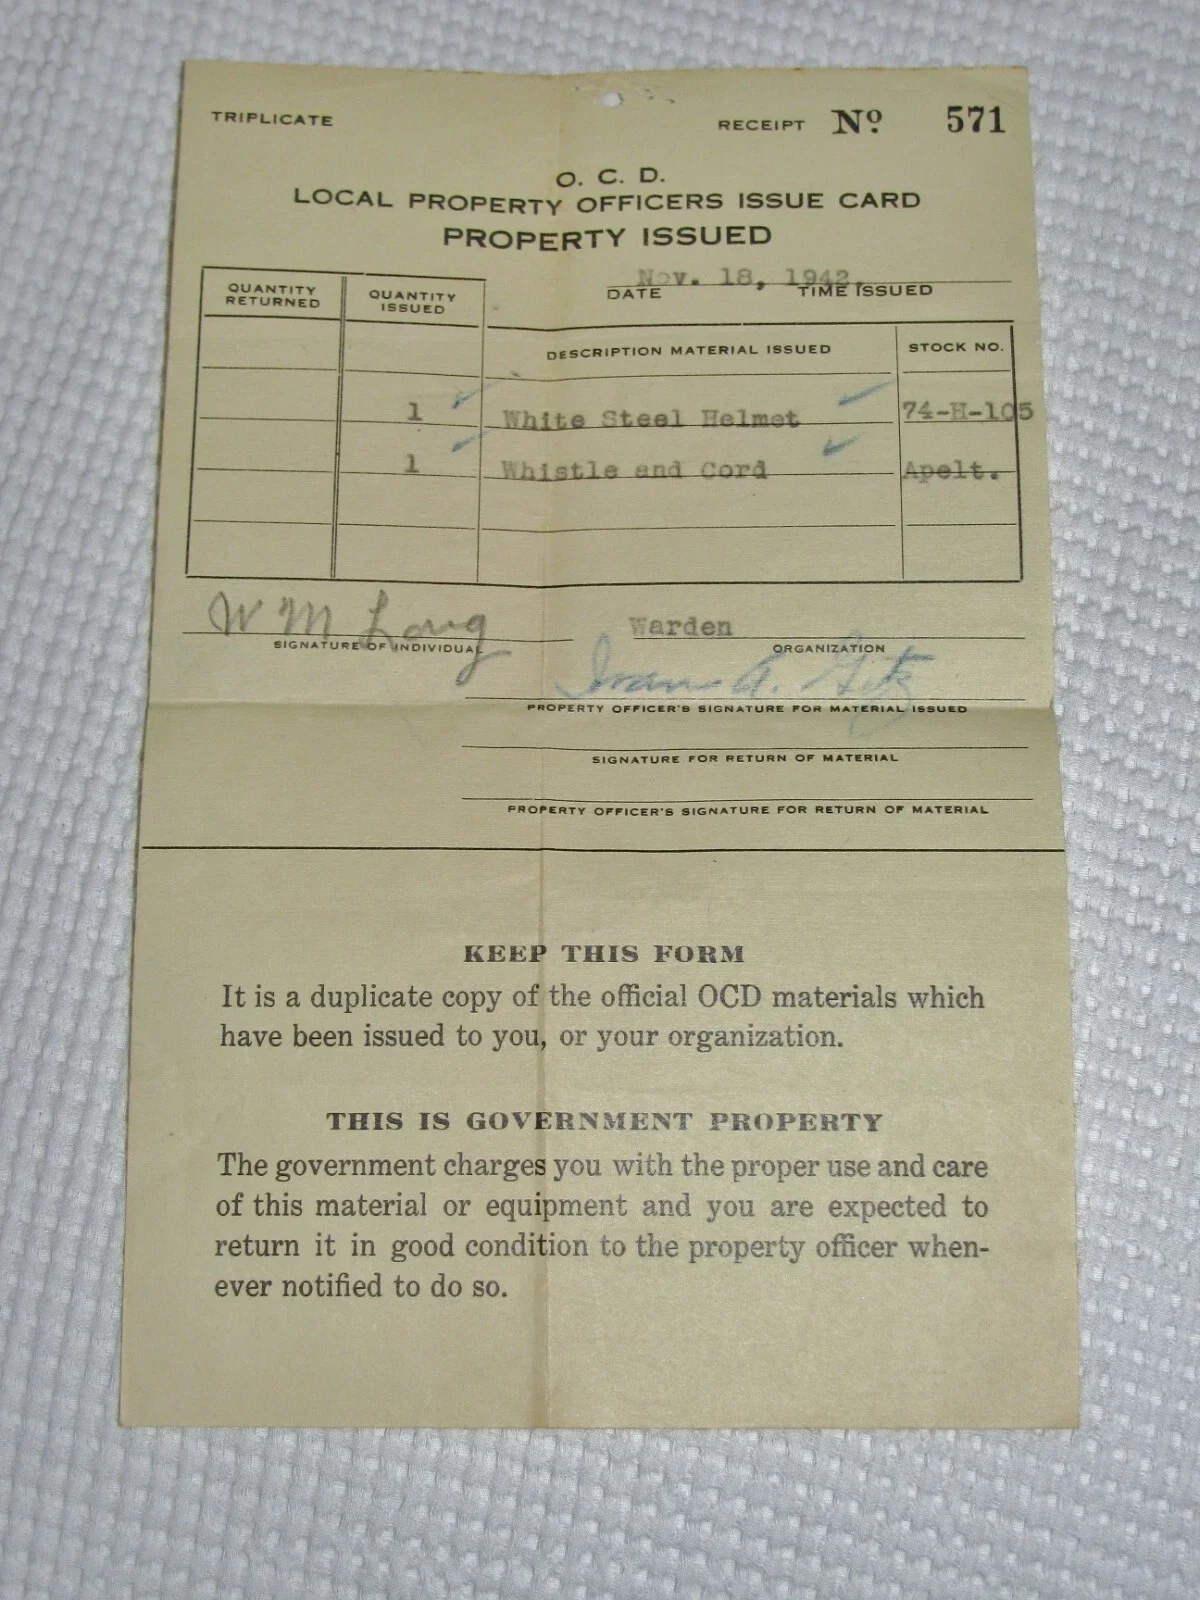 TRIPLICATE
RECEIPT Nº 571
O. C. D.
LOCAL PROPERTY OFFICERS ISSUE CARD
PROPERTY ISSUED
Nov. 18, 1942.
DATE TIME ISSUED
QUANTITY RETURNED
QUANTITY ISSUED
DESCRIPTION MATERIAL ISSUED STOCK NO.
1 White Steel Helmet 74-H-105
1 Whistle and Cord Apelt.
W M Long Warden
SIGNATURE OF INDIVIDUAL ORGANIZATION
A. Getz
PROPERTY OFFICER'S SIGNATURE FOR MATERIAL ISSUED
SIGNATURE FOR RETURN OF MATERIAL
PROPERTY OFFICER'S SIGNATURE FOR RETURN OF MATERIAL
KEEP THIS FORM
It is a duplicate copy of the official OCD materials which
have been issued to you, or your organization.
THIS IS GOVERNMENT PROPERTY
The government charges you with the proper use and care
of this material or equipment and you are expected to
return it in good condition to the property officer when-
ever notified to do so.